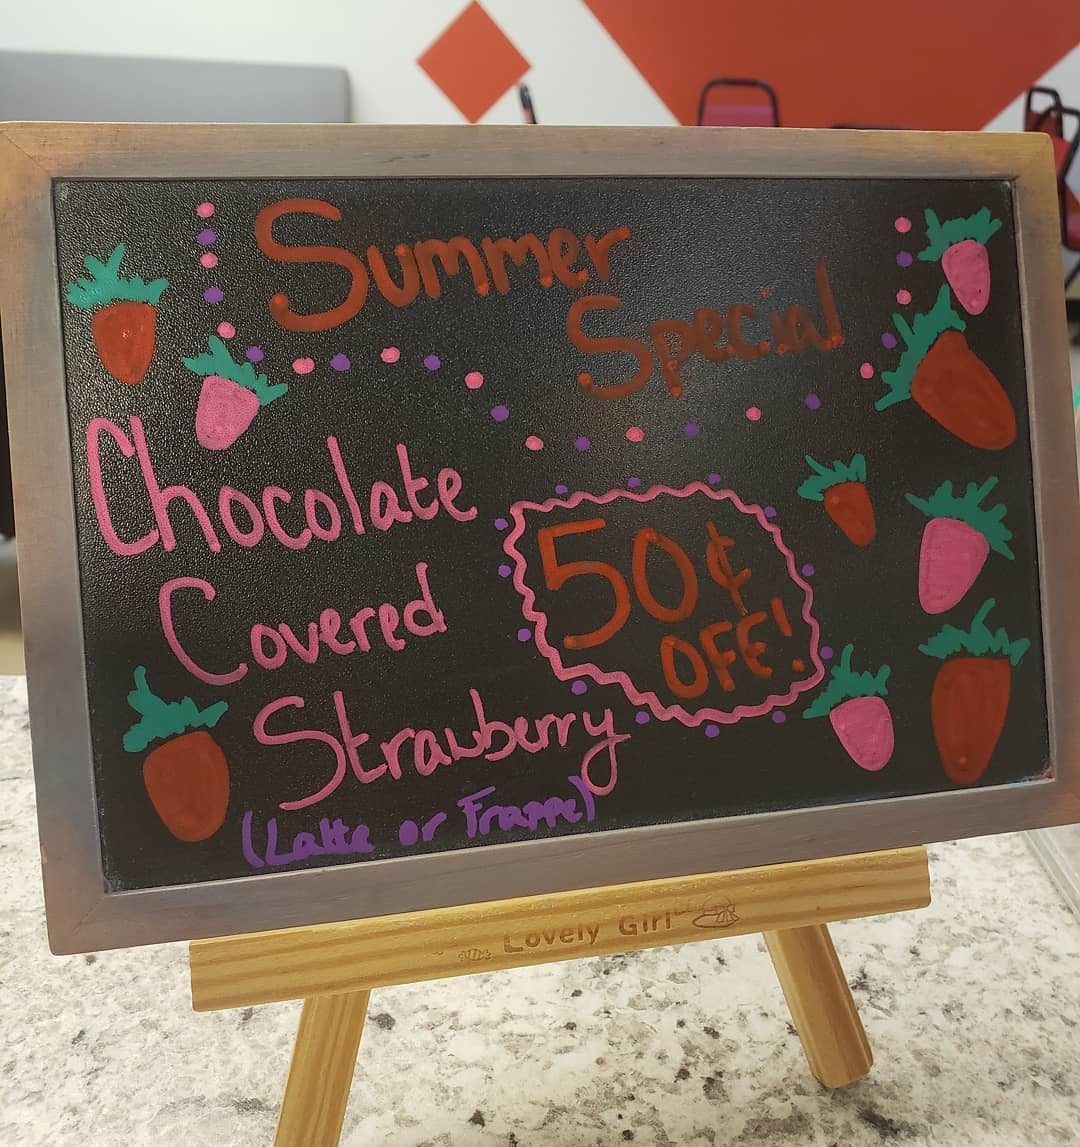 Summer
Special
Chocolate
Covered
Strawberry
(Latte or Frappe)
50¢
OFF!
Lovely Girl